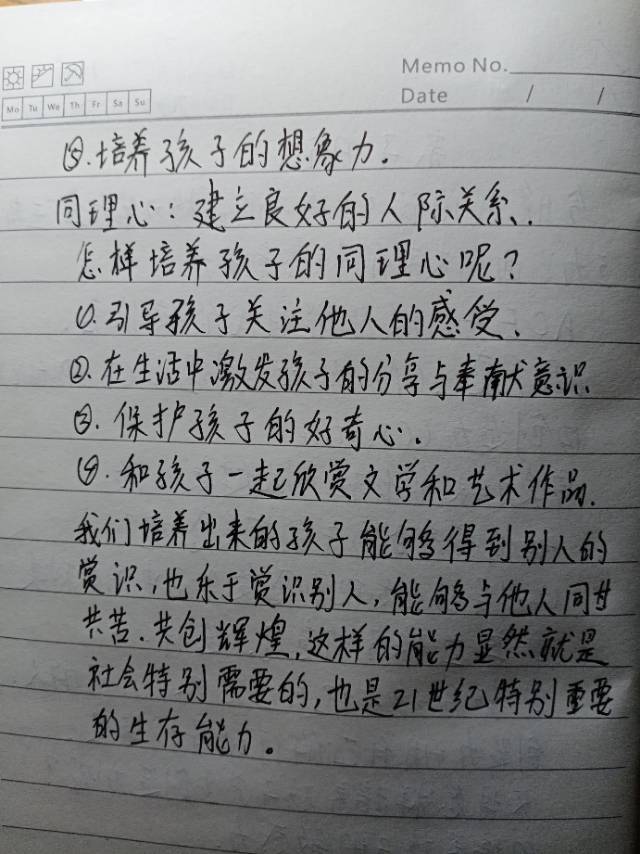 Memo No.
Mo Tu We Th Fr Sa Su
Date / /
⑤.培养孩子的想象力。
同理心：建立良好的人际关系.
怎样培养孩子的同理心呢？
①.引导孩子关注他人的感受.
②.在生活中激发孩子的分享与奉献意识
③.保护孩子的好奇心.
④.和孩子一起欣赏文学和艺术作品.
我们培养出来的孩子能够得到别人的
赏识,也乐于赏识别人,能够与他人同甘
共苦.共创辉煌,这样的能力显然就是
社会特别需要的,也是21世纪特别重要
的生存能力。